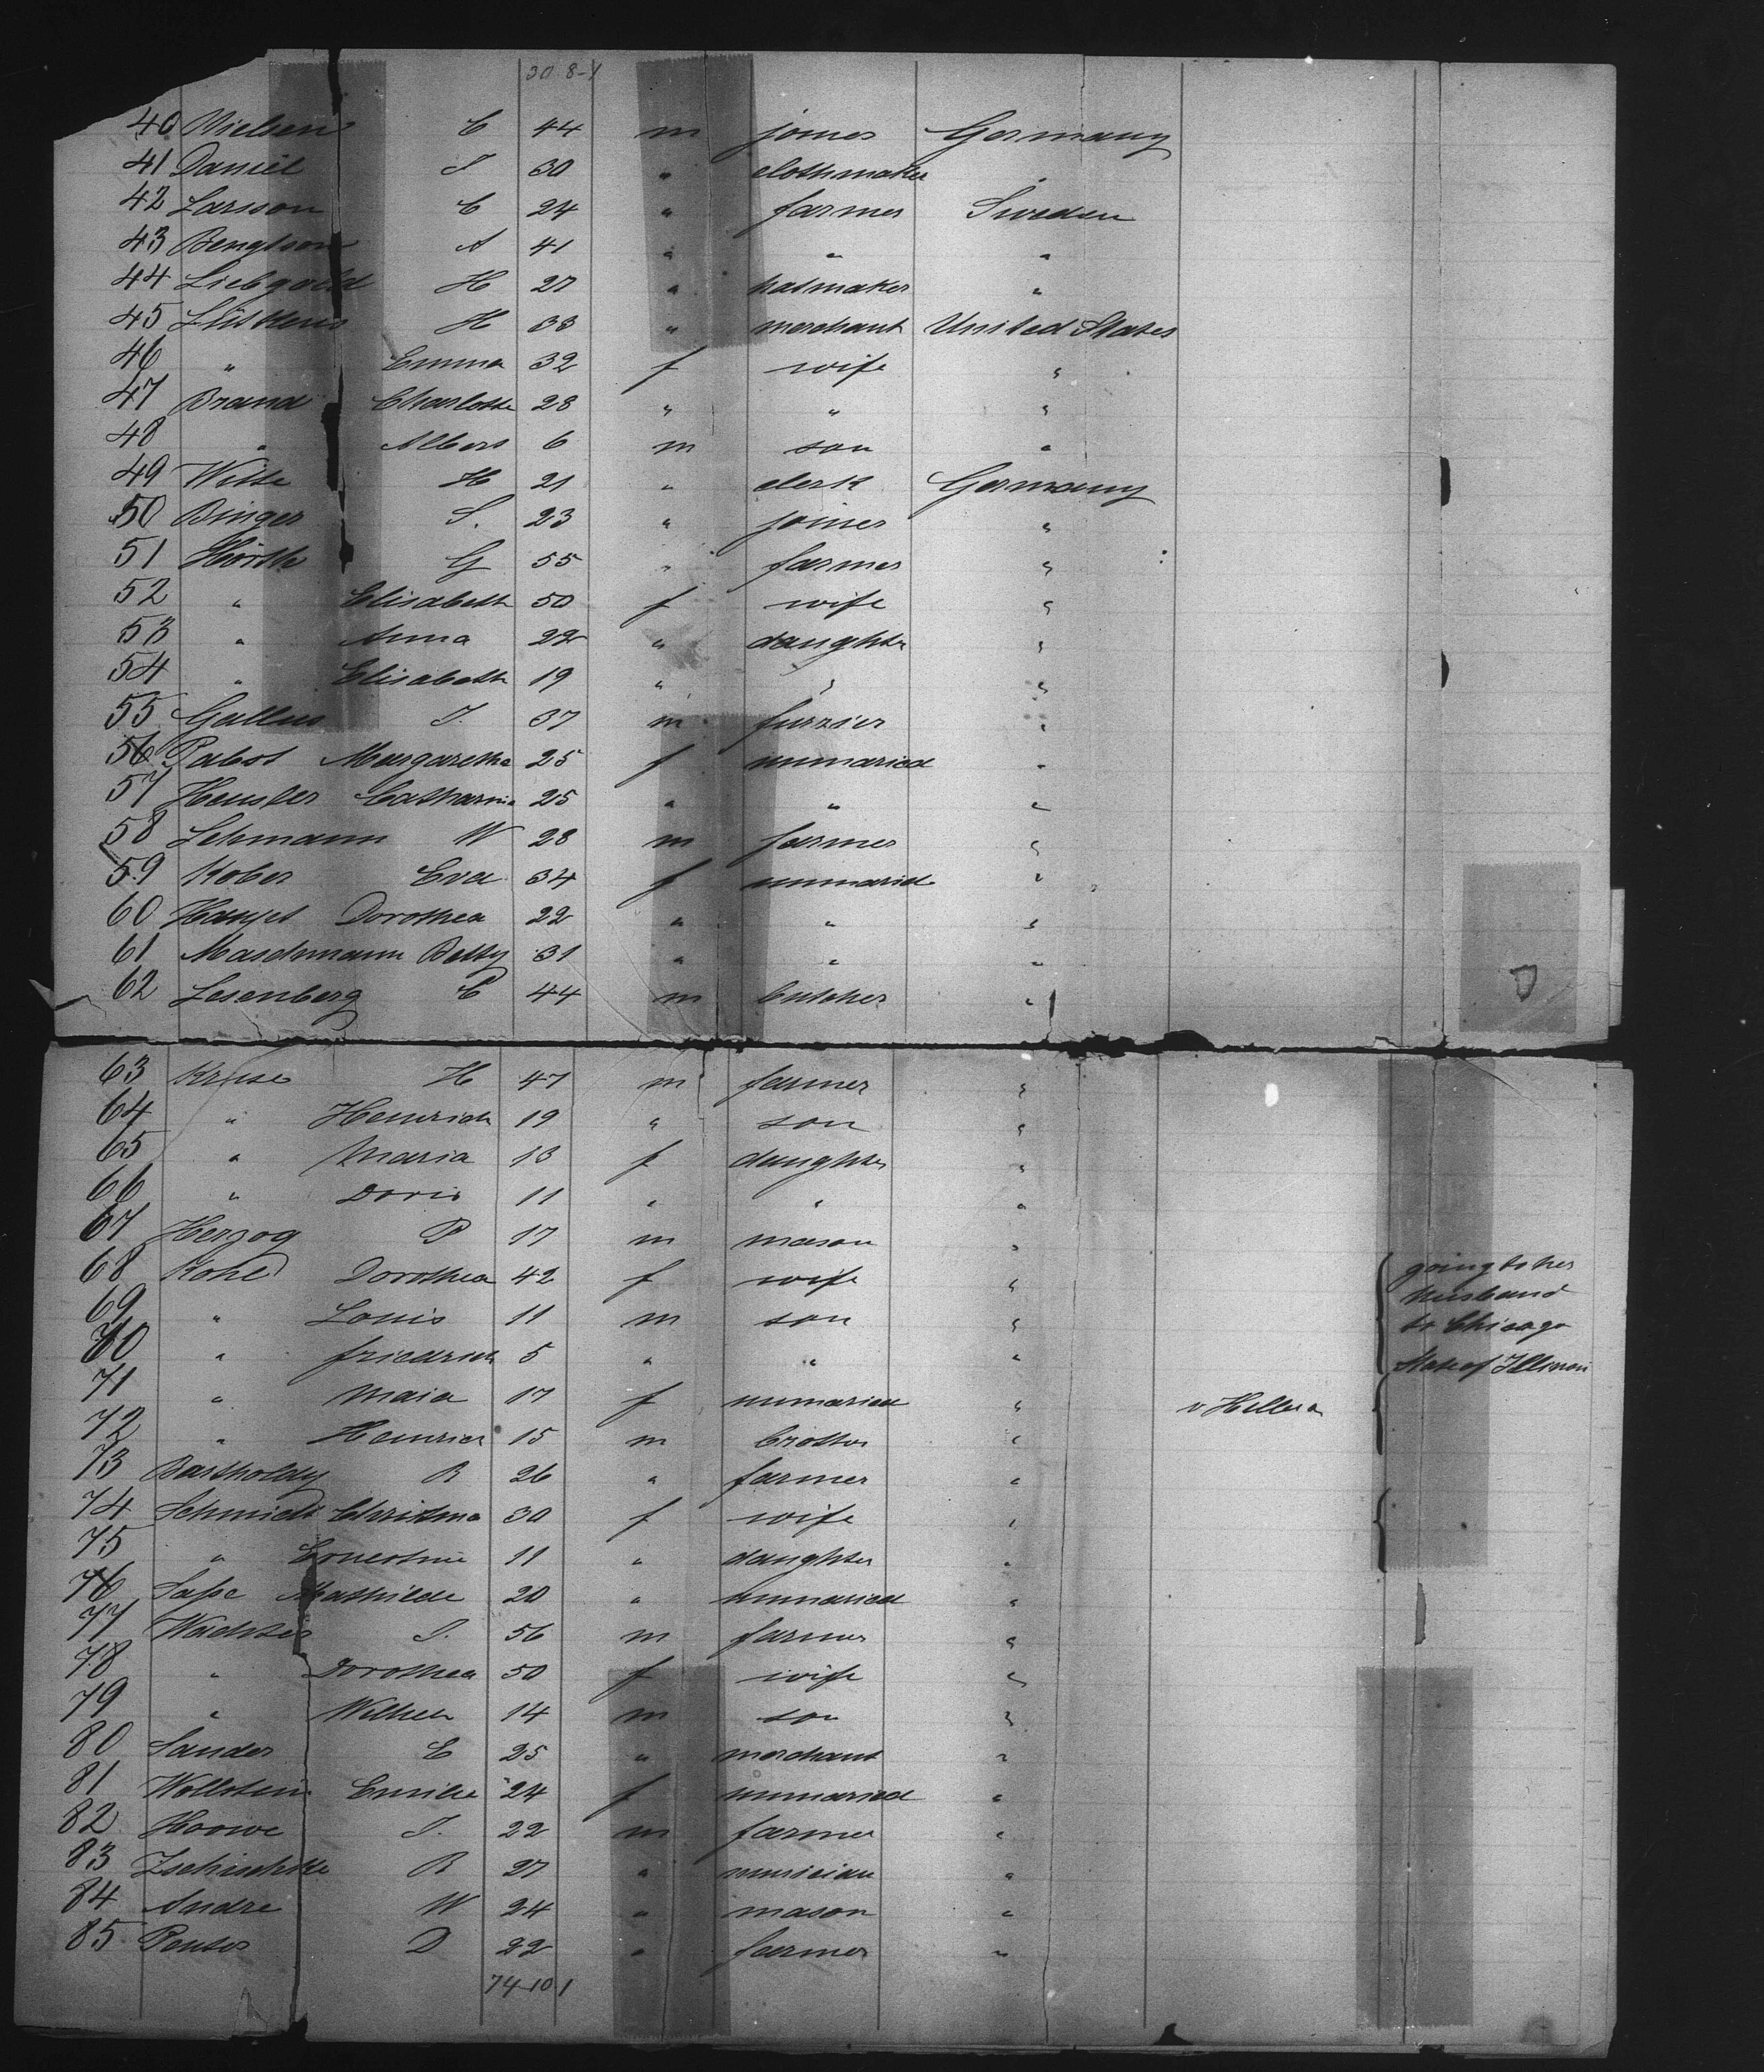 30 8-1
40 Nielsen C 44 m joiner Germany
41 Daniel J 30 " clothmaker "
42 Larsson C 24 " farmer Sweden
43 Bengtson A 41 " " "
44 Liebgold H 27 " hatmaker "
45 H 38 " merchant United States
46 " Emma 32 f wife "
47 Brand Charlotte 28 " " "
48 " Albert 6 m son "
49 Witte H 21 " clerk Germany
50 Binger S. 23 " joiner "
51 G 55 " farmer "
52 " Elisabeth 50 f wife "
53 " Anna 22 " daughter "
54 " Elisabeth 19 " " "
55 Gallus J. 37 m furrier "
56 Pabst Margaretha 25 f unmaried "
57 Heusler Catharina 25 " " "
58 Lehmann W 28 m farmer "
59 Kober Eva 34 f unmaried "
60 Dorothea 22 " " "
61 Maschmann Betty 31 " " "
62 Lesenberg C 44 m butcher "
63 Kruse H 47 m farmer "
64 " Heinrich 19 " son "
65 " Maria 13 f daughter "
66 " Doris 11 " " "
67 Herzog P 17 m mason "
68 Kohl Dorothea 42 f wife " going to her
69 " Louis 11 m son " husband
to Chicago
70 " friedrich 5 " " " State of Illinois
71 " Maria 17 f unmaried "
72 " Heinrich 15 m brother "
73 Bartholdy R 26 " farmer "
74 Schmidt Christina 30 f wife "
75 " Ernestine 11 " daughter "
76 Mathilde 20 " unmaried "
77 Wachter J. 56 m farmer "
78 " Dorothea 50 f wife "
79 " Wilhelm 14 m son "
80 Sander E 25 " merchant "
81 Wollstein Emilie 24 f unmaried "
82 J. 22 m farmer "
83 Zschischke R 27 " musician "
84 Andre W 24 " mason "
85 D 22 " farmer "
74-10 1